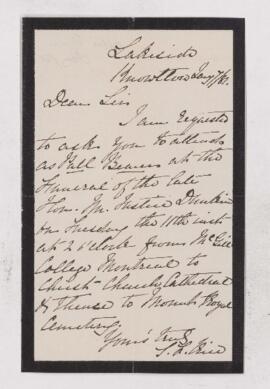 Lakeside
Knowlton Jany 7/81
Dear Sir
I am requested
to ask you to attend
as Pall Bearer at the
Funeral of the late
Hon. Mr. Justice Dunkin
on Tuesday the 11th inst
at 2 o'clock from McGill
College Montreal to
Christ Church Cathedral
& thence to Mount Royal
Cemetery
Yours truly